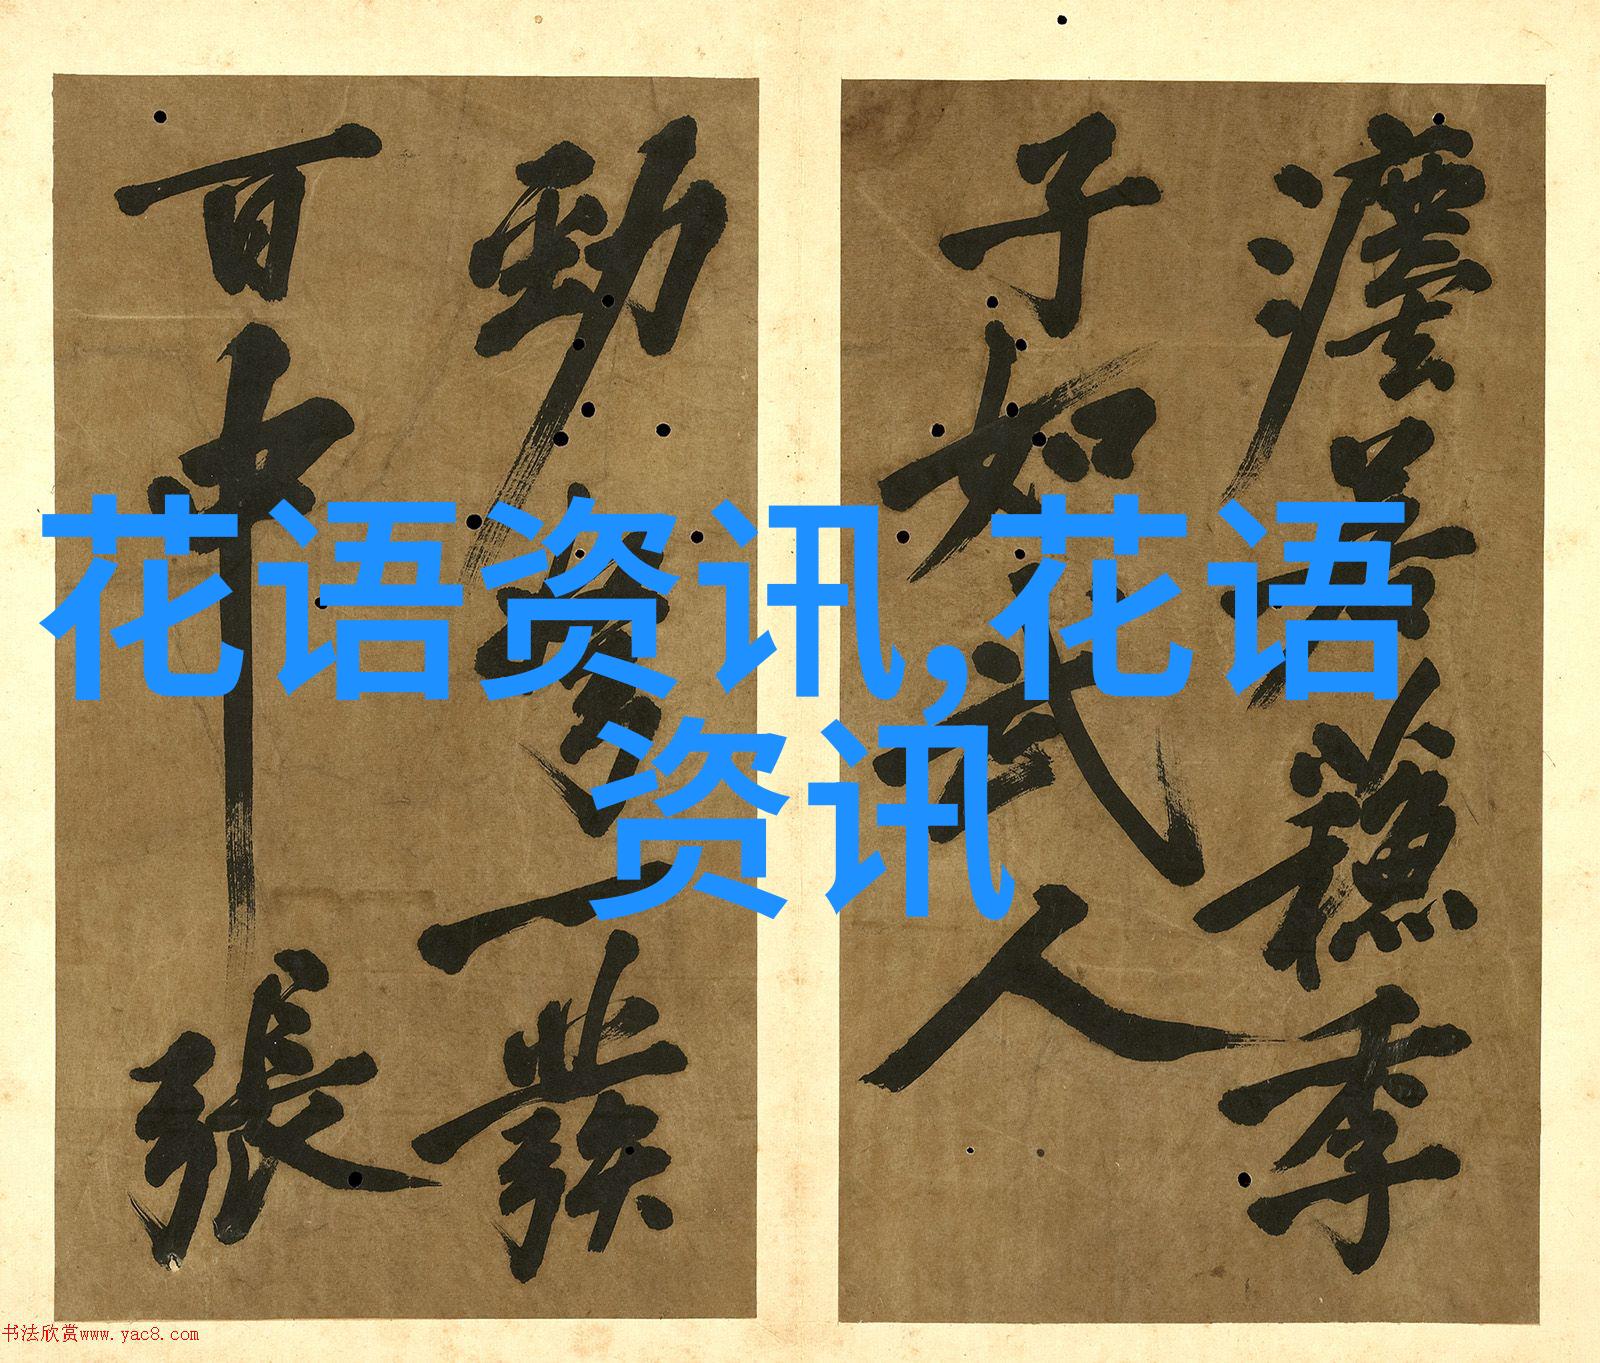 花语资讯,花语
资讯
季
子如武人
勁弩一發
百中
張
书法欣赏www.yac8.com